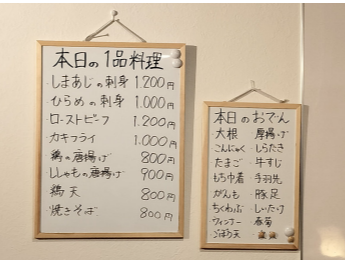 本日の1品料理
・しまあじの刺身 1.200円
・ひらめの刺身 1.000円
・ローストビーフ 1.200円
・カキフライ 1.000円
・鶏の唐揚げ 800円
・ししゃもの唐揚げ 900円
・鶏天 800円
・焼きそば 800円
本日のおでん
・大根 ・厚揚げ
・こんにゃく ・しらたき
・たまご ・牛すじ
・もち巾着 ・手羽先
・がんも ・豚足
・ちくわぶ ・しいたけ
・ウィンナー ・春菊
・ごぼう天